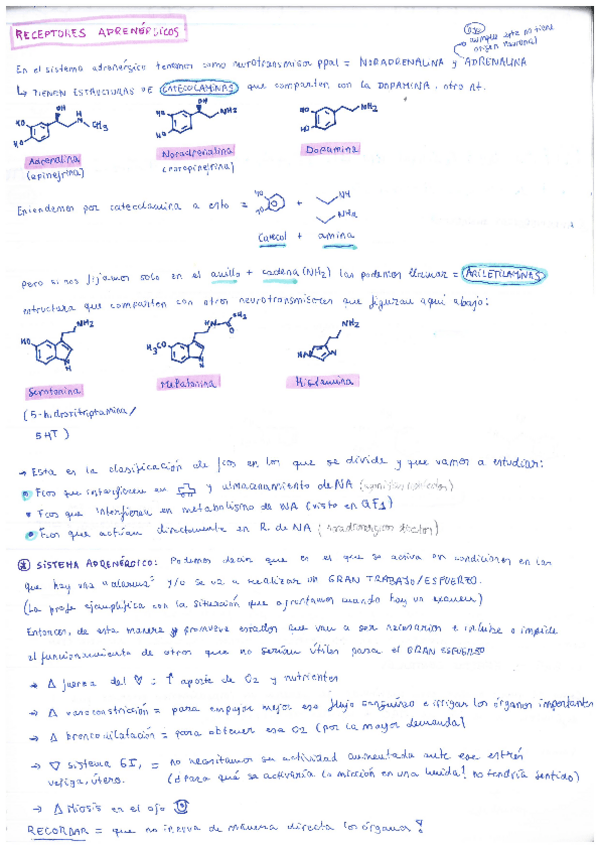 RECEPTORES ADRENÉRGICOS
Ojo aunque esta no tiene
origen neuronal
En el sistema adrenérgico tenemos como neurotransmisor ppal = NORADRENALINA y ADRENALINA
↳ TIENEN ESTRUCTURAS DE CATECOLAMINAS que comparten con la DOPAMINA, otro nt.
HO HO OH H N CH3
HO HO OH NH2
HO HO NH2
Adrenalina Noradrenalina Dopamina
(epinefrina) (norepinefrina)
Entendemos por catecolamina a esto = HO HO + NH
NH2
Catecol + amina
pero si nos fijamos solo en el anillo + cadena (NH2) los podemos llamar = ARILETILAMINAS
estructura que comparten con otros neurotransmisores que figuran aquí abajo:
HO NH2 N H
H3CO HN O CH3 N H
NH2 HN N
Serotonina Melatonina Histamina
(5-hidroxitriptamina/
5HT)
→ Esta es la clasificación de fcos en los que se divide y que vamos a estudiar:
• Fcos que interfieren en y almacenamiento de NA
• Fcos que interfieren en metabolismo de NA (visto en QF1)
• Fcos que actúan directamente en R. de NA
* SISTEMA ADRENÉRGICO: Podemos decir que es el que se activa en condiciones en las
que hay una "alarma" y/o se va a realizar un GRAN TRABAJO/ESFUERZO.
(La profe ejemplifica con la situación que afrontamos cuando hay un examen)
Entonces, de esta manera promueve estados que van a ser necesarios e inhibe o impide
el funcionamiento de otros que no serían útiles para el GRAN ESFUERZO
→ Δ fuerza del ♥ : ↑ aporte de O2 y nutrientes
→ Δ vasoconstricción = para empujar mejor ese flujo sanguíneo e irrigar los órganos importantes
→ Δ broncodilatación = para obtener ese O2 (por la mayor demanda)
→ ∇ sistema GI, = no necesitamos su actividad aumentada ante ese estrés
vejiga, útero. (¿Para qué se activaría la micción en una huida! no tendría sentido)
→ Δ Miosis en el ojo
RECORDAR = que no inerva de manera directa los órganos !